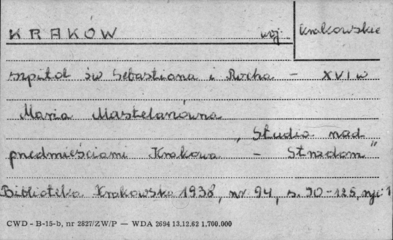 KRAKÓW woj. krakowskie
szpital św Sebastiana i Rocha - XVI w
Maria Mastelanówna
"Studia nad
przedmieściami Krakowa - Stradom"
Biblioteka Krakowska 1938, nr 94, s. 90-126, ryc 1
CWD - B-15-b, nr 2827/ZW/P — WDA 2694 13.12.62 1.700.000